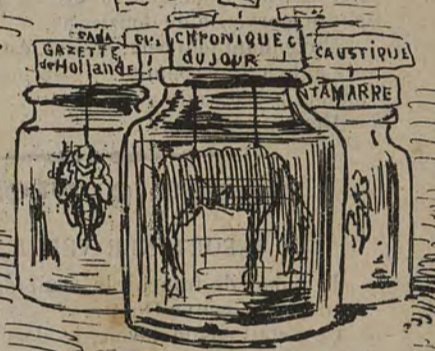 GAZETTE
de Hollande
CHRONIQUE C
du JOUR
CAUSTIQUE
NTAMARRE